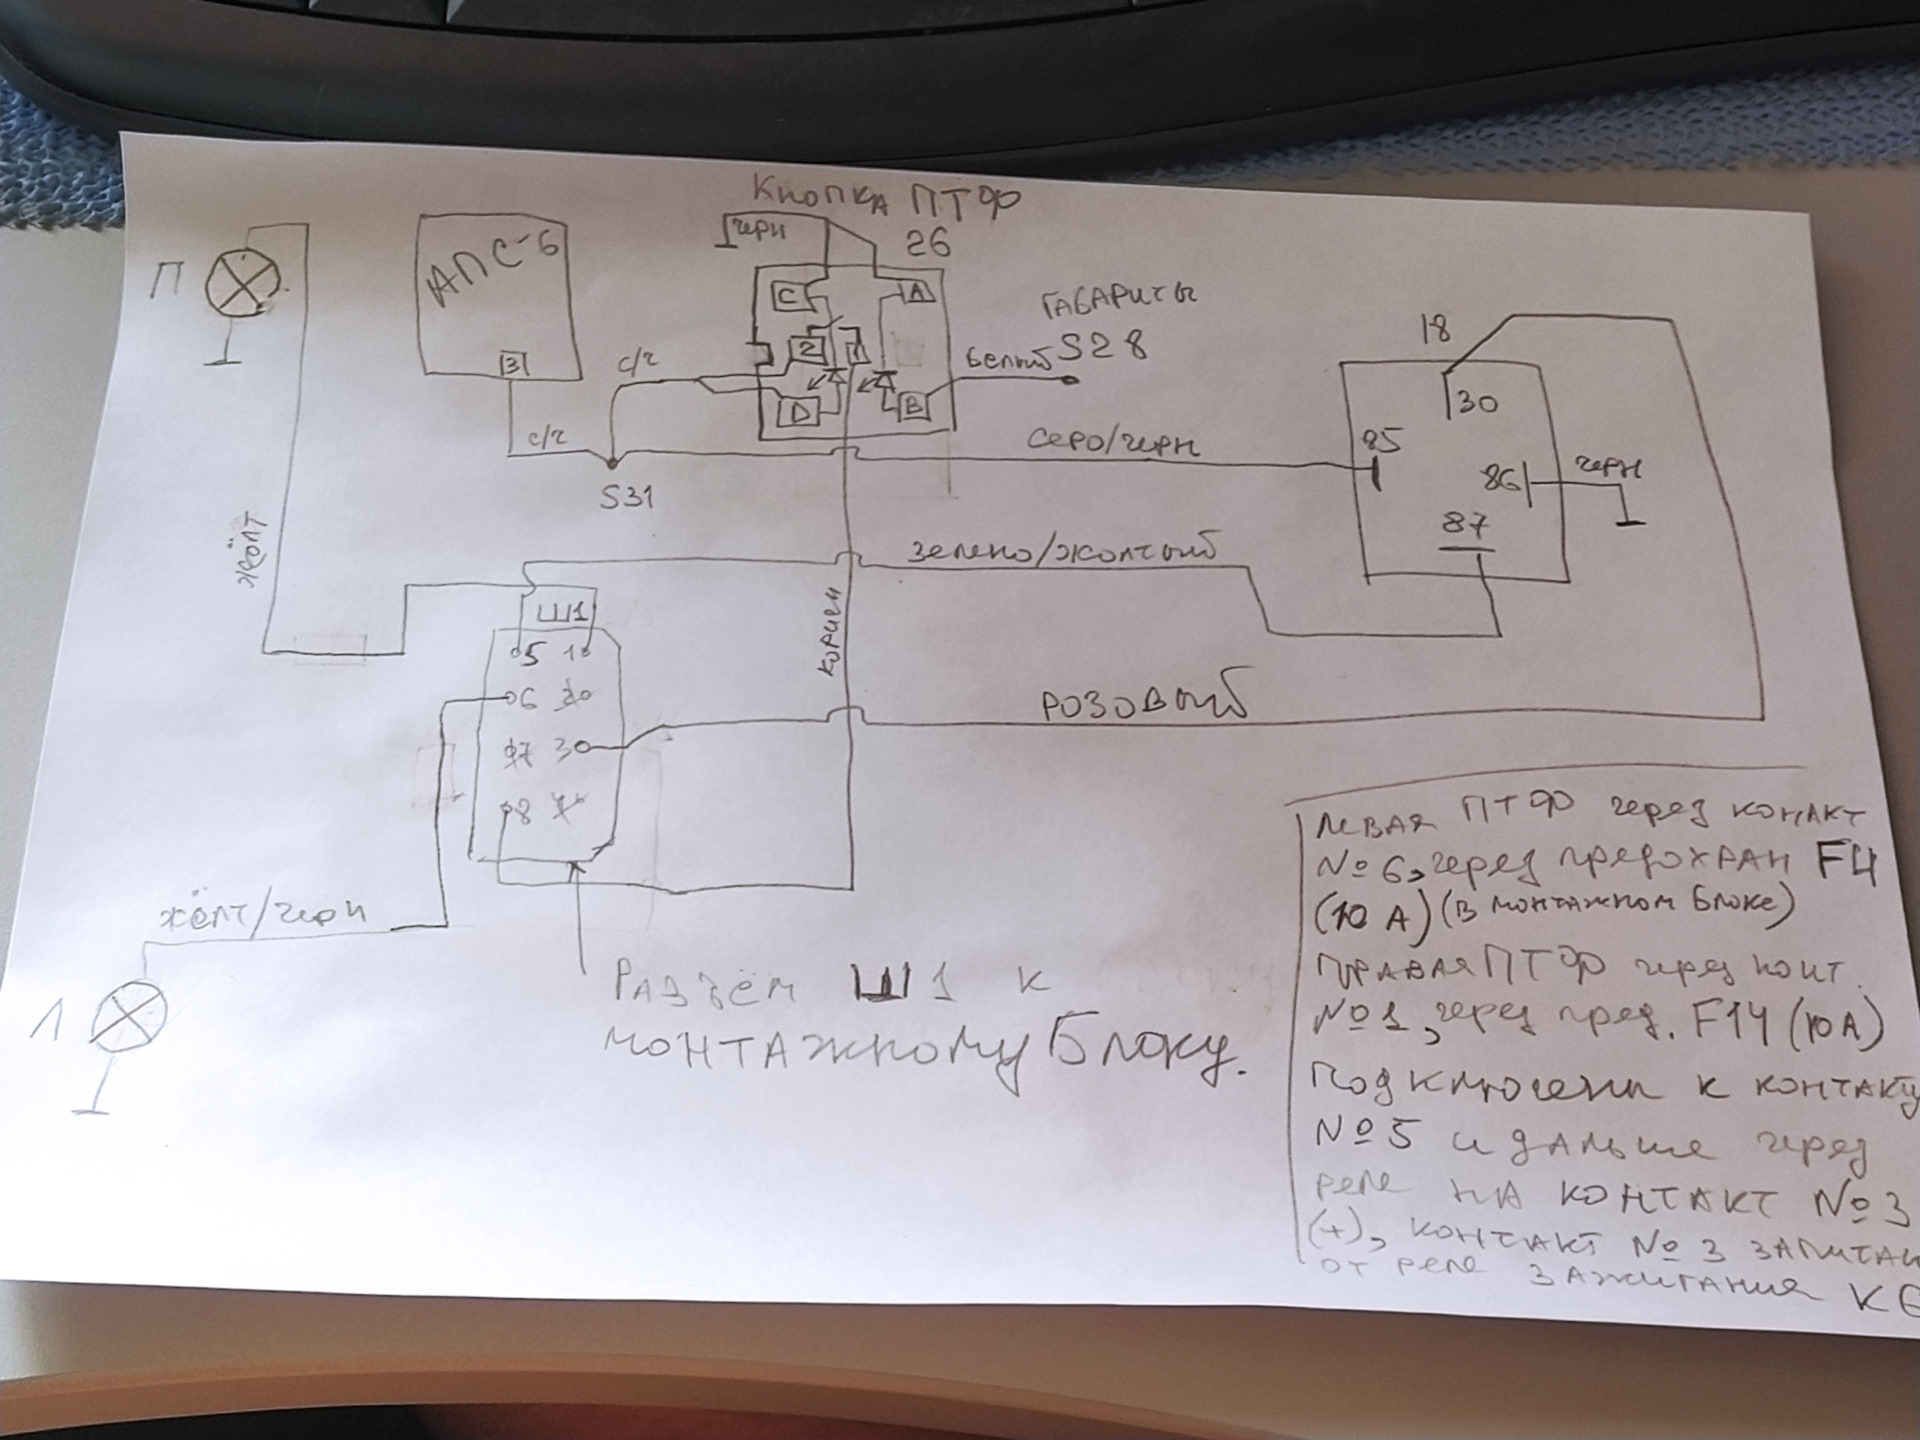 Кнопка ПТФ
26
черн
П
АПС-6
3
C
A
2
1
D
B
с/ч
с/ч
S31
ГАБАРИТЫ
S28
белый
серо/черн
18
30
85
86
87
черн
жёлт
зелено/жолтый
коричн
розовый
Ш1
5 1
6 2
7 3
8 4
жёлт/черн
Л
Разъём Ш1 к
монтажному блоку.
левая ПТФ через контакт
№6, через предохран F4
(10 А) (в монтажном блоке)
правая ПТФ через конт.
№1, через пред. F14 (10А)
подключены к контакту
№5 и дальше через
реле на контакт №3
(+), контакт №3 запитан
от реле зажигания К6